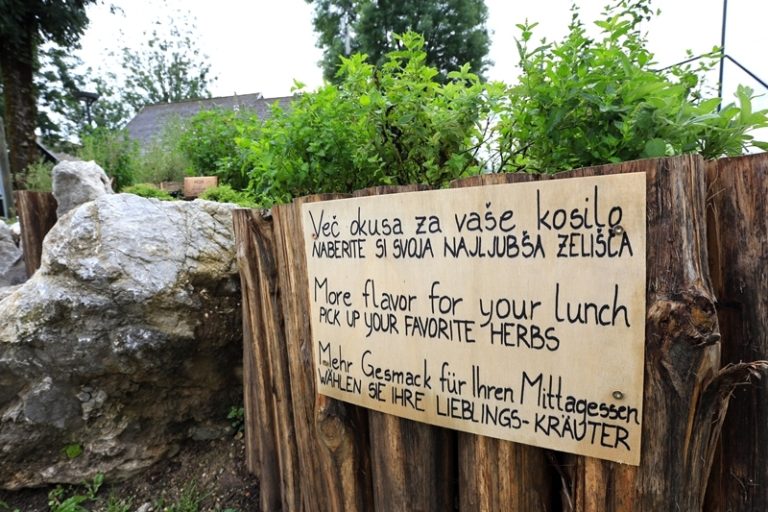 Več okusa za vaše kosilo
NABERITE SI SVOJA NAJLJUBŠA ZELIŠČA
More flavor for your lunch
PICK UP YOUR FAVORITE HERBS
Mehr Gesmack für Ihren Mittagessen
WÄHLEN SIE IHRE LIEBLINGS-KRÄUTER